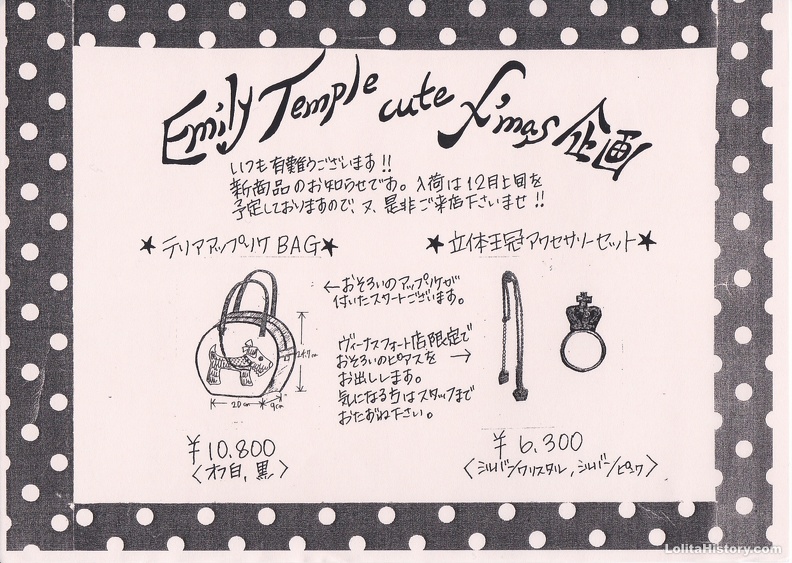 Emily Temple cute X'mas 企画
いつも有難うございます!!
新商品のお知らせです。入荷は12月上旬を
予定しておりますので、又、是非ご来店下さいませ!!
★テリアアップリケBAG★
←おそろいのアップリケが
付いたスカートございます。
24.7cm
20cm
9cm
¥10.800
〈オフ白,黒〉
★立体王冠アクセサリーセット★
ヴィーナスフォート店限定で
おそろいのピアスを →
お出しします。
気になる方はスタッフまで
おたずね下さい。
¥6.300
〈シルバー/クリスタル,シルバー/ピンク〉
LolitaHistory.com